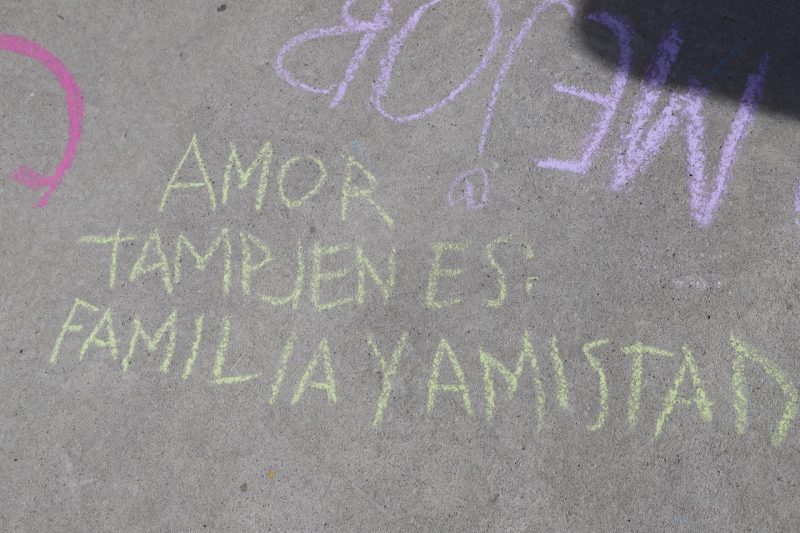 MEJOR
AMOR
TAMPJEN ES:
FAMILIA Y AMISTAD